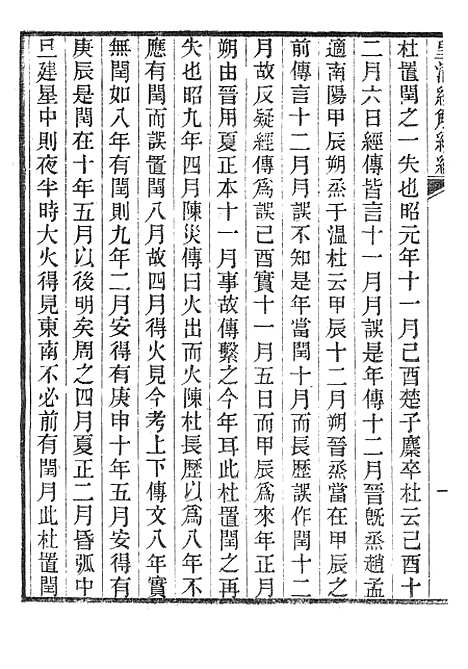 皇清經解續編
杜置閏之一失也昭元年十一月己酉楚子麇卒杜云己酉十
二月六日經傳皆言十一月月誤是年傳十二月晉旣烝趙孟
適南陽甲辰朔烝于溫杜云甲辰十二月朔晉烝當在甲辰之
前傳言十二月月誤不知是年當閏十月而長歷誤作閏十二
月故反疑經傳爲誤己酉實十一月五日而甲辰爲來年正月
朔由晉用夏正本十一月事故傳繫之今年耳此杜置閏之再
失也昭九年四月陳災傳曰火出而火陳杜長歷以爲八年不
應有閏而誤置閏八月故四月得火見今考上下傳文八年實
無閏如八年有閏則九年二月安得有庚申十年五月安得有
庚辰是閏在十年五月以後明矣周之四月夏正二月昏弧中
旦建星中則夜半時大火得見東南不必前有閏月此杜置閏
一